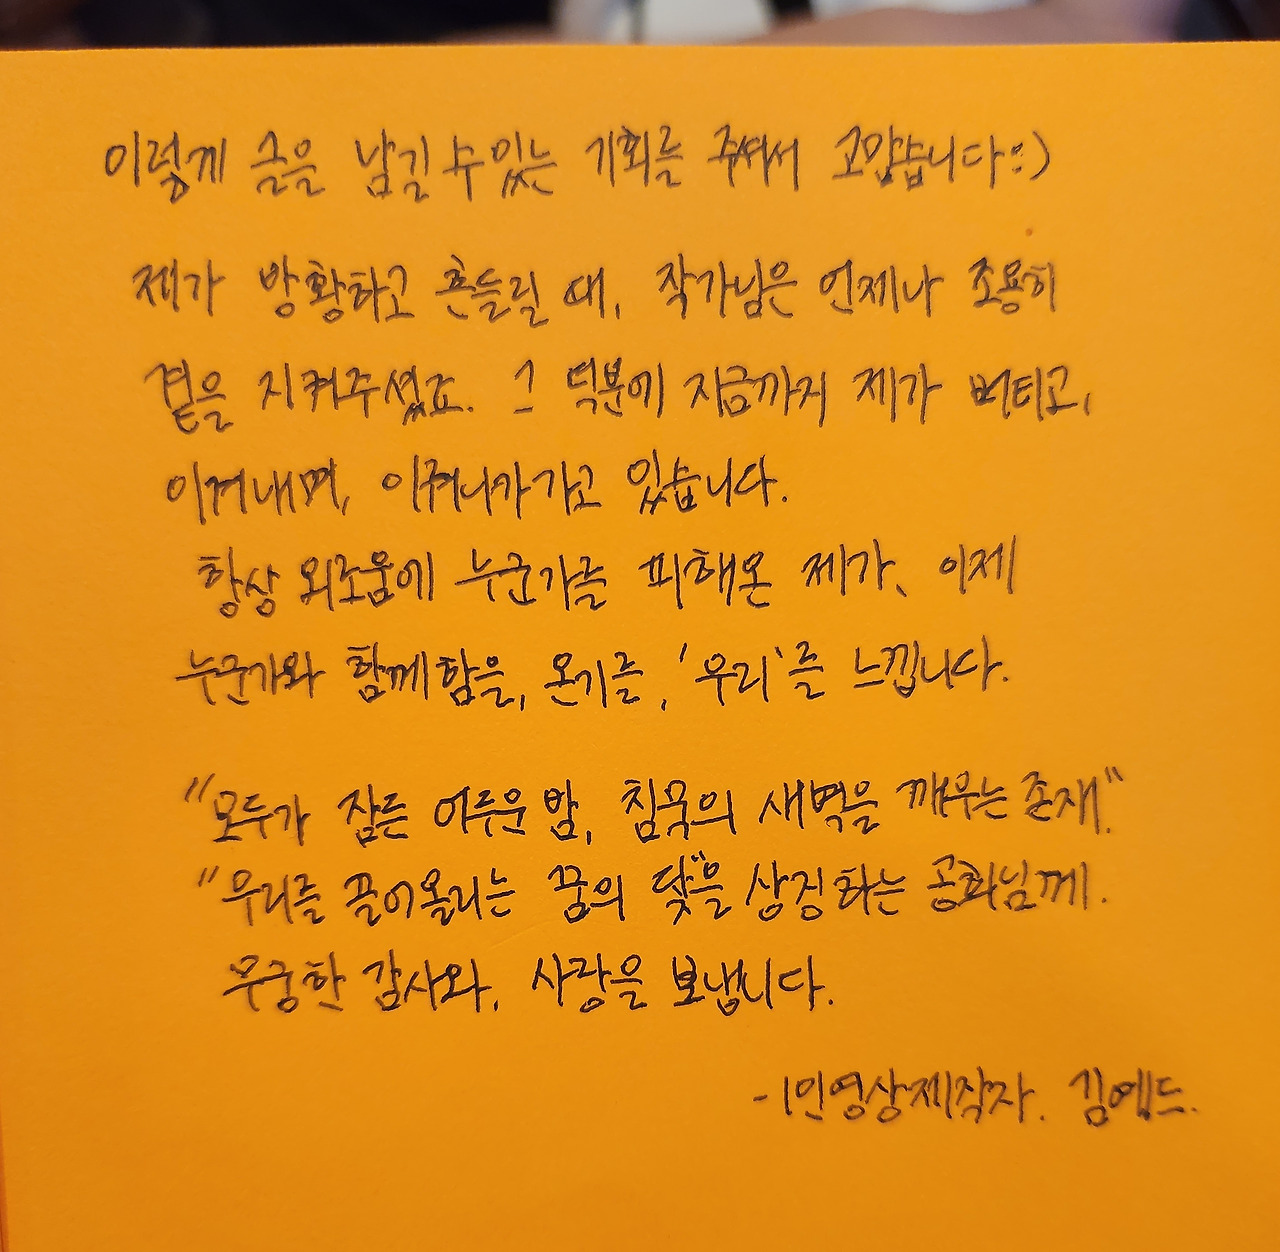 이렇게 글을 남길 수 있는 기회를 주셔서 고맙습니다:)
제가 방황하고 흔들릴 때, 작가님은 언제나 조용히
곁을 지켜주셨죠. 그 덕분에 지금까지 제가 버티고,
이겨내며, 이뤄나가가고 있습니다.
항상 외로움에 누군가를 피해온 제가, 이제
누군가와 함께함을, 온기를, '우리'를 느낍니다.
"모두가 잠든 어두운 밤, 침묵의 새벽을 깨우는 존재."
"우리를 끌어올리는 꿈의 닻"을 상징하는 공화님께.
무궁한 감사와, 사랑을 보냅니다.
-1인영상제작자. 김에드.